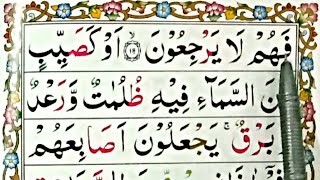 فَهُمْ لَا يَرْجِعُوْنَ ۙ﴿۱۸﴾ اَوْ كَصَيِّبٍ
نَ السَّمَآءِ فِيْهِ ظُلُمٰتٌ وَّرَعْدٌ
بَرْقٌ ۚ يَجْعَلُوْنَ اَصَابِعَهُمْ